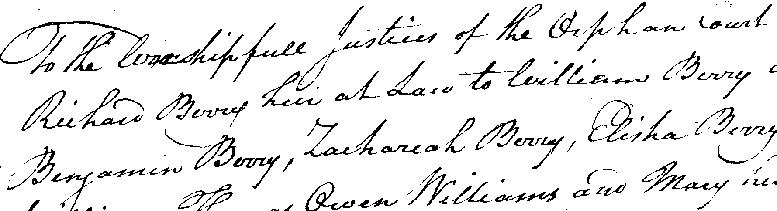 To the Worshipfull Justices of the Orphan Court
Richard Berry heir at Law to William Berry
Benjamin Berry, Zachareah Berry, Elisha Berry
Owen Williams and Mary